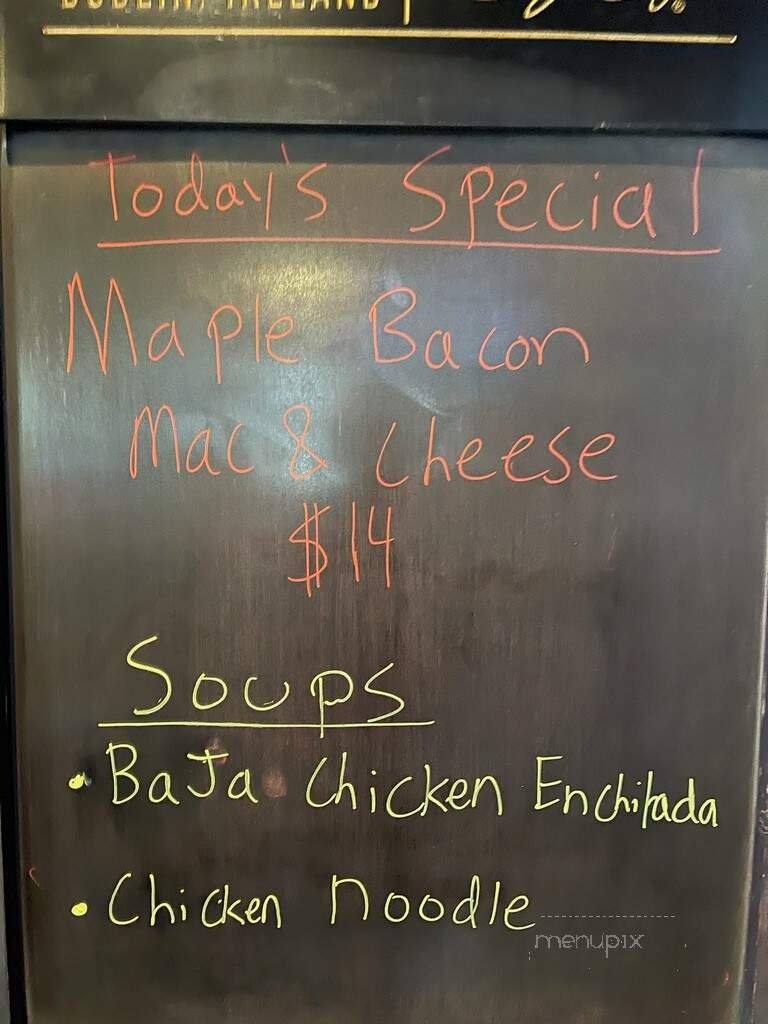 DUBLIN, IRELAND
Today's Special
Maple Bacon
Mac & Cheese
$14
Soups
• Baja Chicken Enchilada
• Chicken noodle
menupix